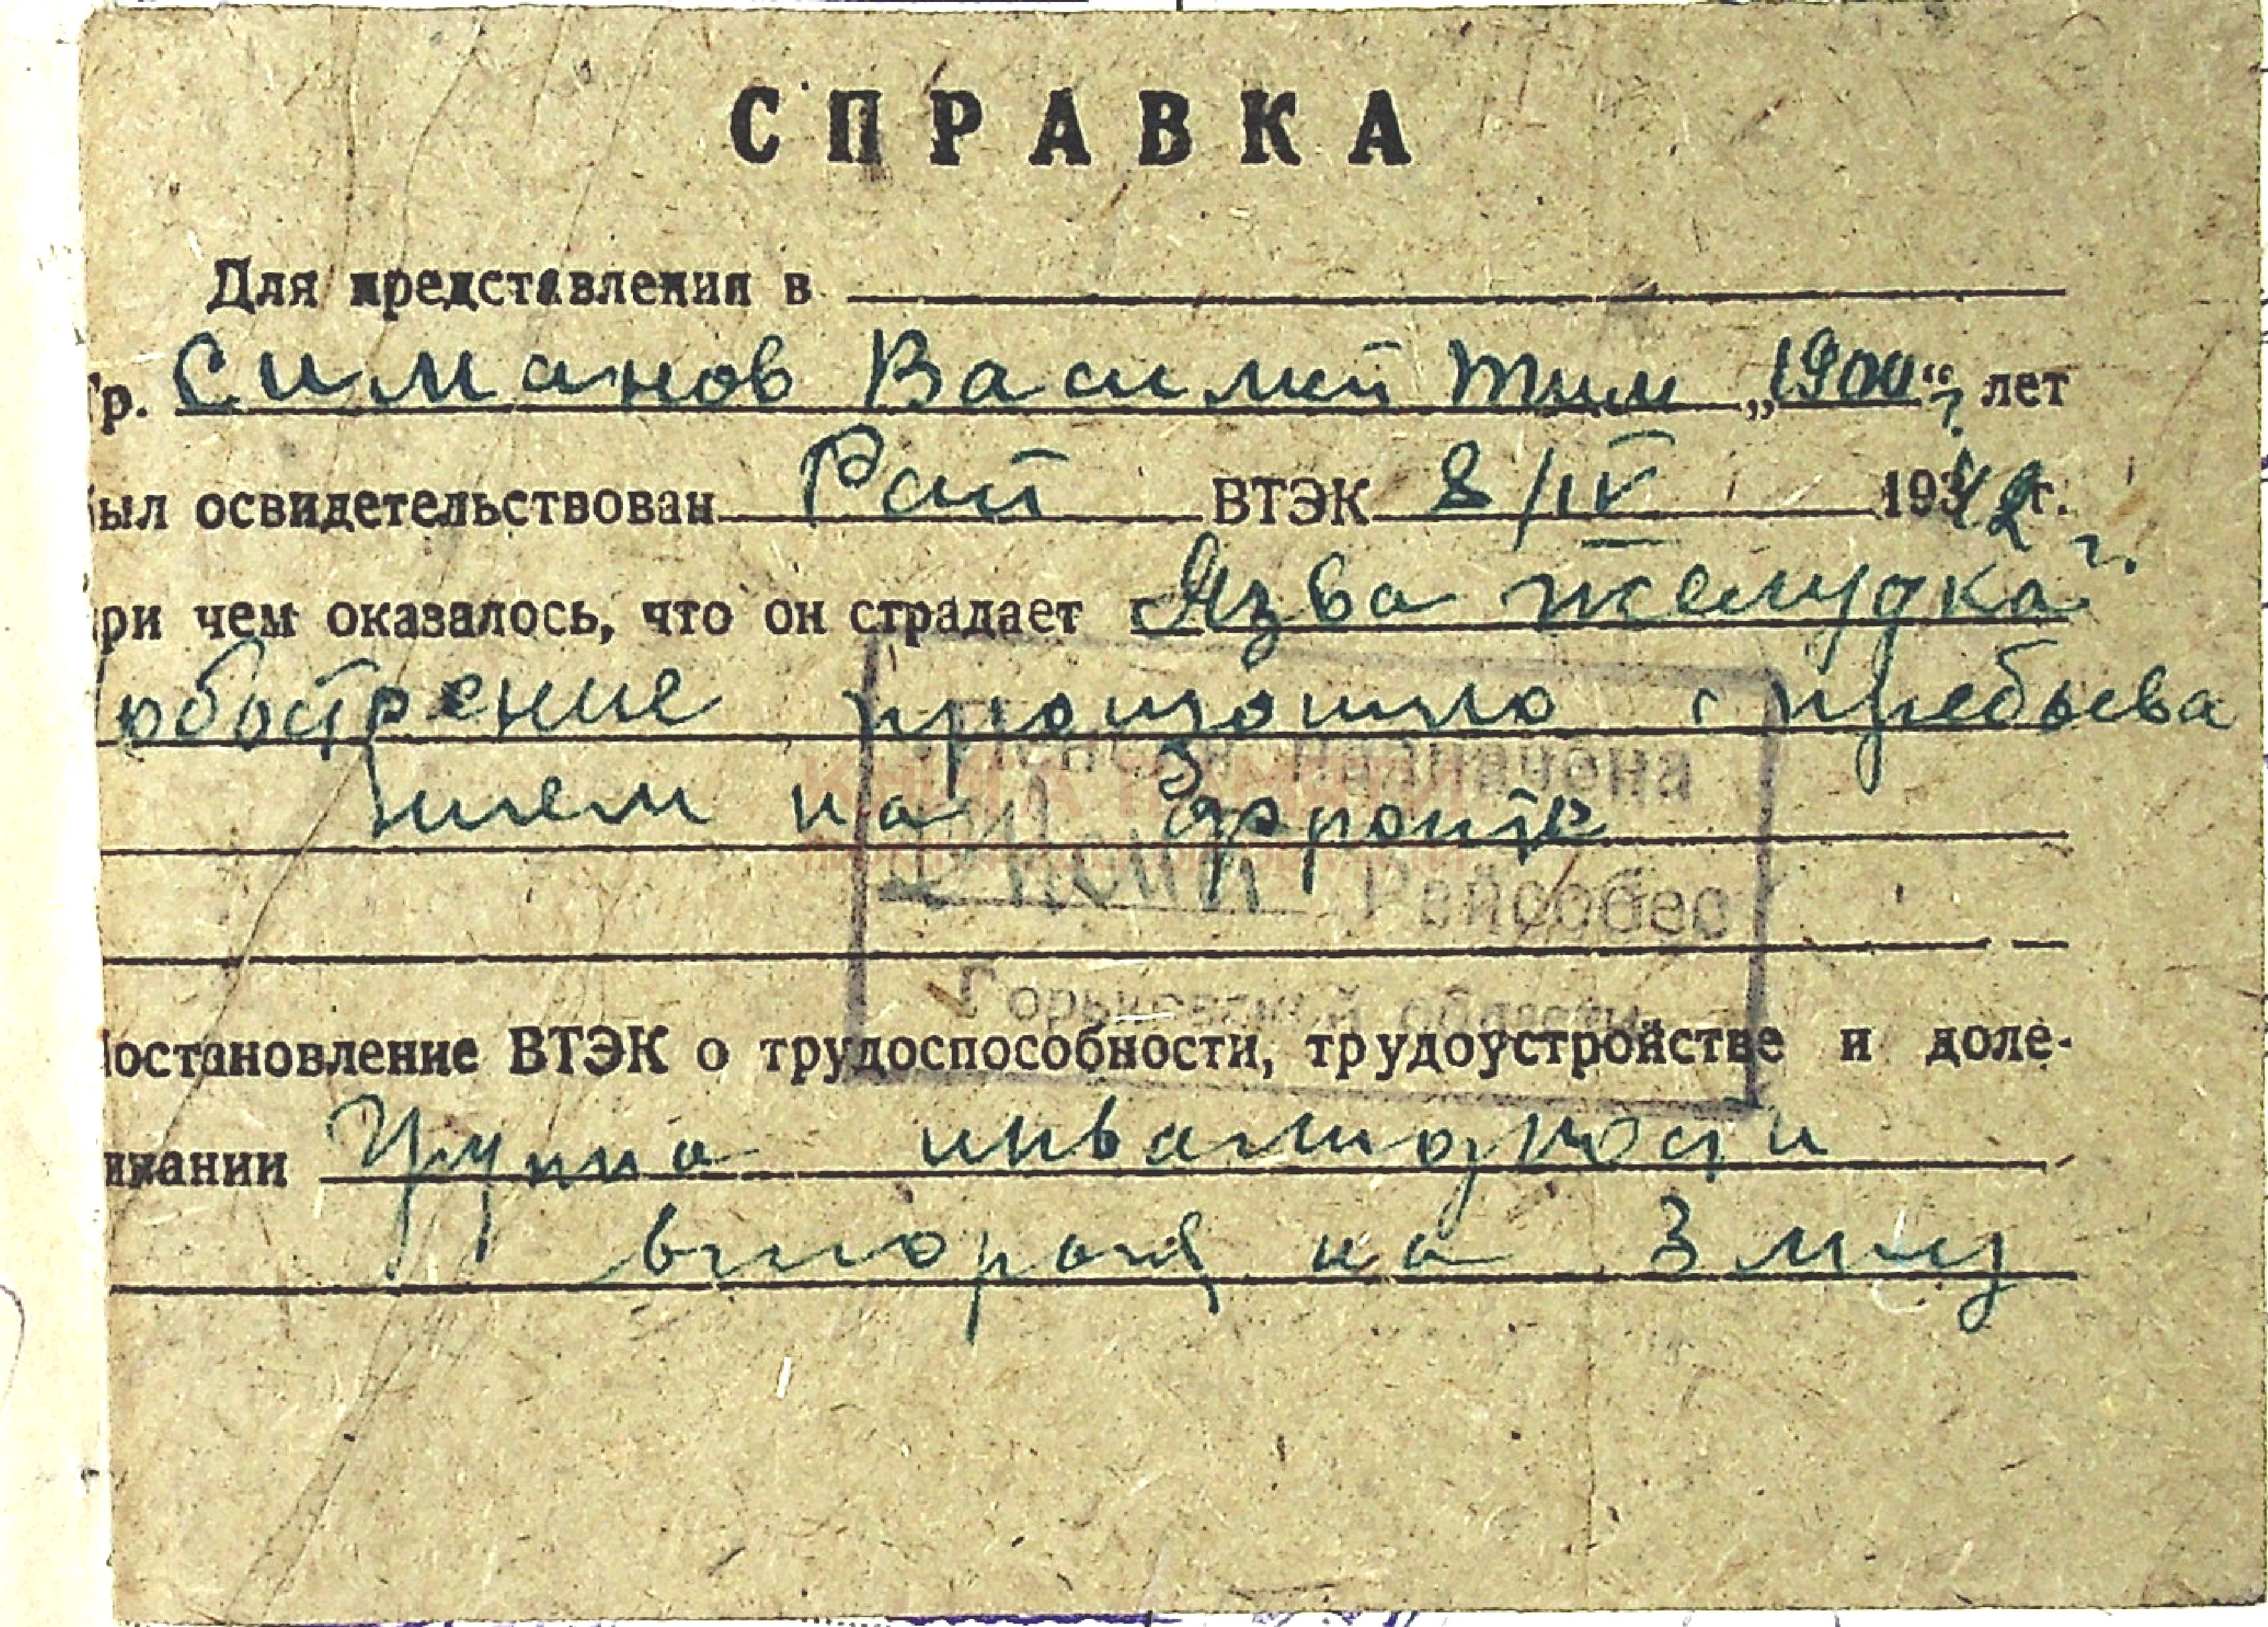 СПРАВКА
Для представления в
гр. Симанов Василий Тим „1900“ г. лет
был освидетельствован Рай ВТЭК 8/IV 1942 г.
при чем оказалось, что он страдает „Язва желудка“
обострение произошло с пребыва
нием на фронте
Пенсия назначена
Райсобес
Горьковской области
Постановление ВТЭК о трудоспособности, трудоустройстве и доле-
чивании Група инвалидности
вторая на 3 мец
КНИГА ПАМЯТИ